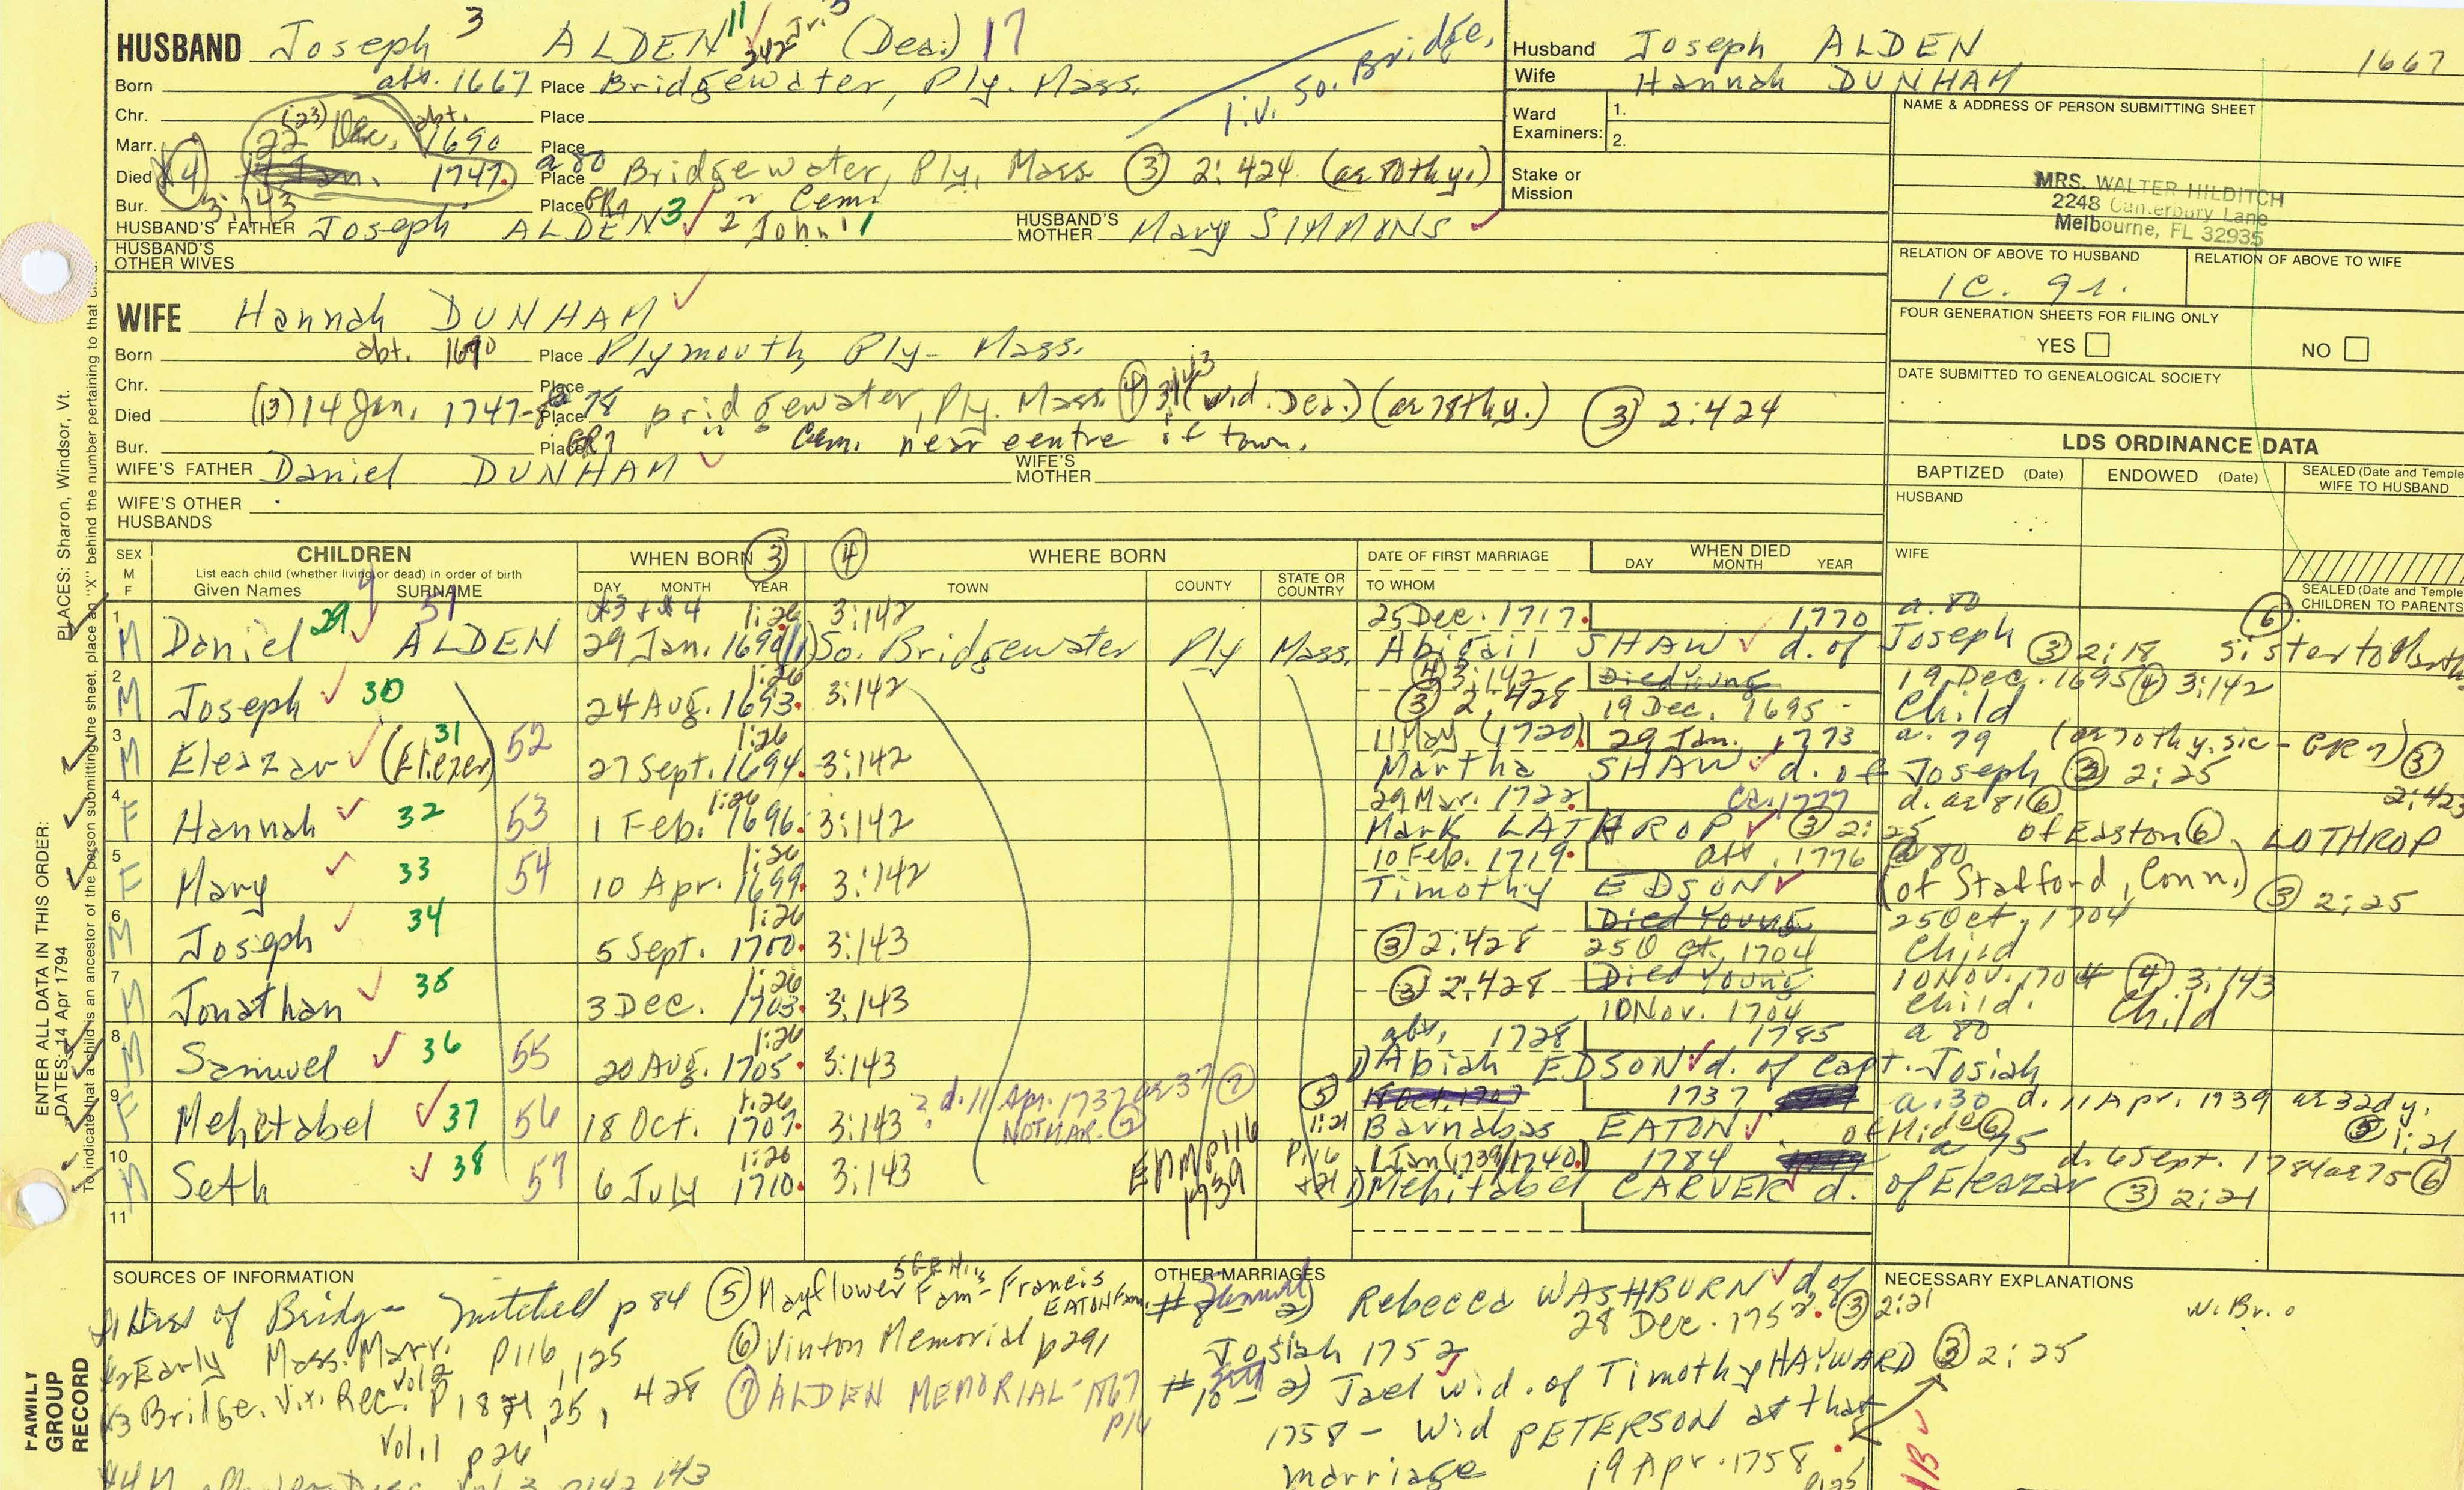 HUSBAND Joseph 3 ALDEN 11 Jr. 5 342 (Dea.) 17
liv. So. Bridge.
Born abt. 1667 Place Bridgewater, Ply. Mass.
Chr. Place
Marr. (23) 22 Dec. abt. 1690 Place
Died #4 Jan. 1747. Place a 80 Bridgewater, Ply. Mass (3) 2:424 (ae 80thy.)
Bur. 3:143 Place GR7 " Cem.
HUSBAND'S FATHER Joseph ALDEN 3 2 John 1 HUSBAND'S MOTHER Mary SIMMONS
HUSBAND'S OTHER WIVES
Husband Joseph ALDEN 1667
Wife Hannah DUNHAM
Ward Examiners: 1.
2.
Stake or Mission
NAME & ADDRESS OF PERSON SUBMITTING SHEET
MRS. WALTER HILDITCH
2248 Canterbury Lane
Melbourne, FL 32935
RELATION OF ABOVE TO HUSBAND RELATION OF ABOVE TO WIFE
1C. 9r.
FOUR GENERATION SHEETS FOR FILING ONLY
YES NO
DATE SUBMITTED TO GENEALOGICAL SOCIETY
WIFE Hannah DUNHAM
Born abt. 1670 Place Plymouth, Ply- Mass.
Chr. Place
Died (13) 14 Jan. 1747-8 Place 78 Bridgewater, Ply. Mass. (4) 3:143 (wid. Dea.) (ae 78thy.) (3) 2:424
Bur. Place GR7 " Cem. near centre of town.
WIFE'S FATHER Daniel DUNHAM WIFE'S MOTHER
WIFE'S OTHER HUSBANDS
LDS ORDINANCE DATA
BAPTIZED (Date) ENDOWED (Date) SEALED (Date and Temple WIFE TO HUSBAND
HUSBAND
WIFE
SEALED (Date and Temple CHILDREN TO PARENTS
SEX M F CHILDREN List each child (whether living or dead) in order of birth Given Names SURNAME
WHEN BORN (3) DAY MONTH YEAR
(4) WHERE BORN TOWN COUNTY STATE OR COUNTRY
DATE OF FIRST MARRIAGE TO WHOM
WHEN DIED DAY MONTH YEAR
1 #3 + #4 1:26 3:142 25 Dec. 1717. 1770 a. 80 (6)
M Daniel 29 ALDEN 51 29 Jan. 1690/1) So. Bridgewater Ply Mass. Abigail SHAW d. of Joseph (3) 2:18 sister to
2 1:26 (4) 3:142 Died Young 19 Dec. 1695 (4) 3:142
M Joseph 30 24 Aug. 1693. 3:142 (3) 2:428 19 Dec. 1695 - Child
3 31 1:26 11 May (1720). 29 Jan. 1773 a. 79 (ae 70thy. sic - GR7) (3)
M Eleazar (Eliezer) 52 27 Sept. 1694. 3:142 Martha SHAW d. of Joseph (3) 2:25 2:423
4 1:26 29 Mar. 1722. ca. 1777 d. ae 81 (6)
F Hannah 32 53 1 Feb. 1696. 3:142 Mark LATHROP (3) 2:25 of Easton (6) LOTHROP
5 1:26 10 Feb. 1719. aft. 1776 @ 80
F Mary 33 54 10 Apr. 1699. 3:142 Timothy EDSON (of Stafford, Conn.) (3) 2:25
6 34 1:26 Died Young 25 Oct, 1704
M Joseph 5 Sept. 1700. 3:143 (3) 2:428 25 Oct. 1704 Child
7 35 1:26 Died Young 10 Nov. 1704 (4) 3:143
M Jonathan 3 Dec. 1703. 3:143 (3) 2:428 10 Nov. 1704 Child. Child
8 1:26 abt. 1728 1785 a 80
M Samuel 36 55 20 Aug. 1705. 3:143 1) Abiah EDSON d. of Capt. Josiah
9 1:26 ? d. 11 Apr. 1737 ae 37 (7) (5) 18 Oct. 1707 1737 a. 30 d. 11 Apr. 1739 ae 32dy.
F Mehetabel 37 56 18 Oct. 1707. 3:143 NOT MAR. (7) 1:21 Barnabas EATON of Mid. (6) (5) 1:21
10 1:26 EMM P116 1739 P116 +21 1 Jan (1739/1740.) 1784 a 75 d. 6 Sept. 1784 ae 75 (6)
M Seth 38 57 6 July 1710. 3:143 1) Mehitabel CARVER d. of Eleazar (3) 2:21
11
SOURCES OF INFORMATION
#1 Hist of Bridg- Mitchell p 84
#2 Early Mass. Marr. P116, 125
#3 Bridge. Vit. Rec. Vol 2 P 18 21, 25, 428
Vol. 1 p 26
Vol 3 p142 143
(5) Mayflower Fam- Francis EATON Fam.
(6) Vinton Memorial p 291
(7) ALDEN MEMORIAL-
OTHER MARRIAGES
#8 Samuel 2) Rebecca WASHBURN d. of
28 Dec. 1752. (3) 2:21
Josiah 1752
#10 Seth 2) Jael wid. of Timothy HAYWARD (3) 2:25
1758 - Wid PETERSON at that
marriage 19 Apr. 1758.
NECESSARY EXPLANATIONS
W. Br.
FAMILY GROUP RECORD
ENTER ALL DATA IN THIS ORDER:
DATES: 14 Apr 1794
PLACES: Sharon, Windsor, Vt.
To indicate that a child is an ancestor of the person submitting the sheet, place an "X" behind the number pertaining to that